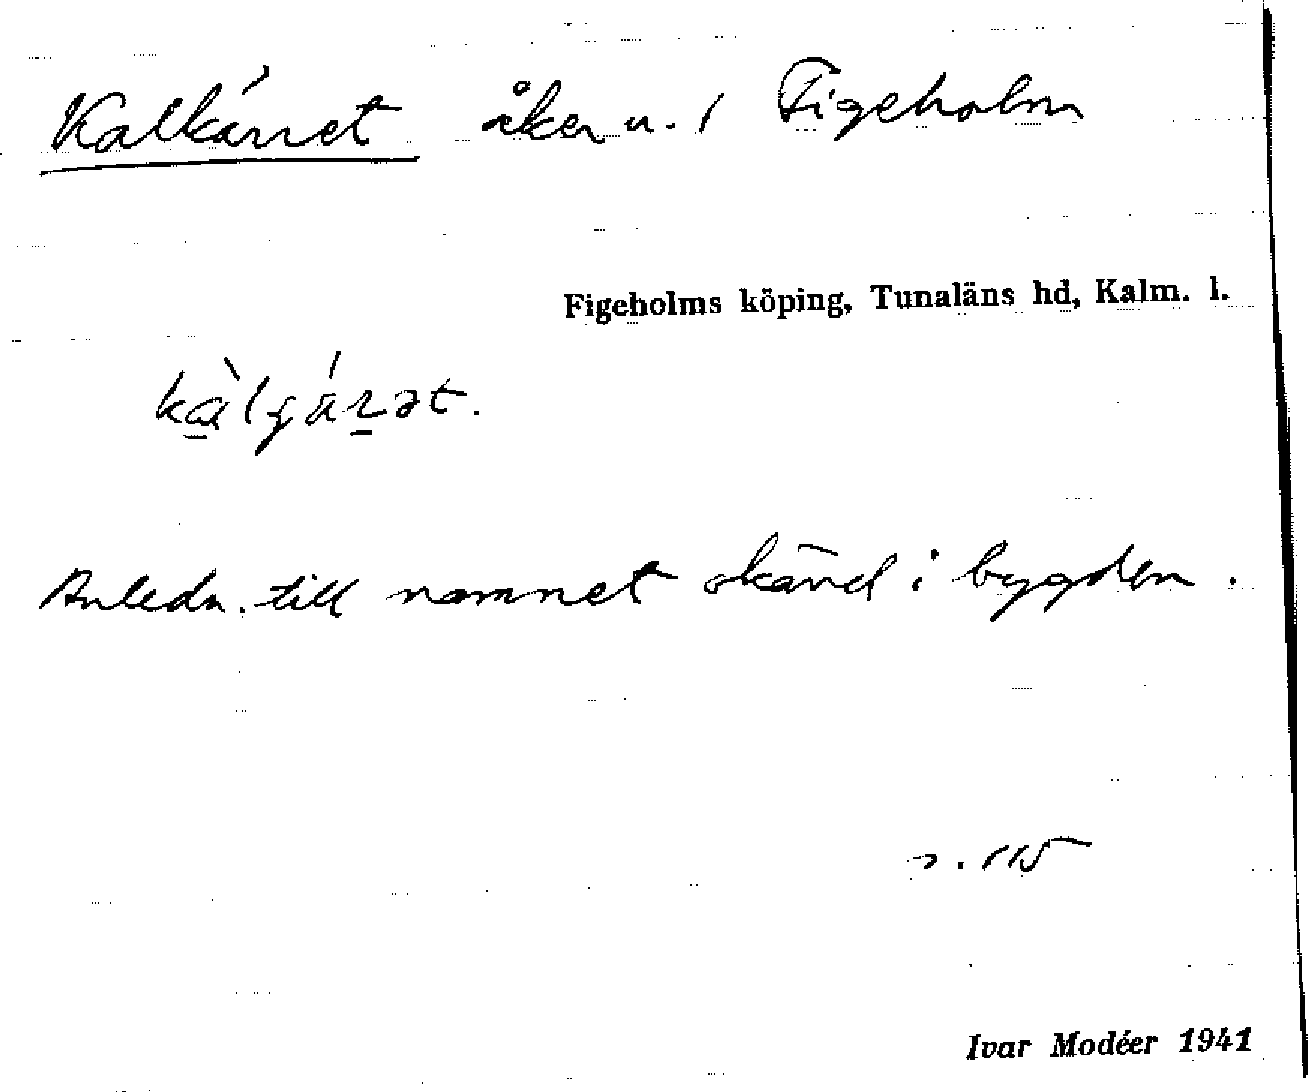 Kalkärret åker u. 1 Figeholm
Figeholms köping, Tunaläns hd, Kalm. l.
Anledn. till namnet okänd i bygden.
s. 115
Ivar Modéer 1941